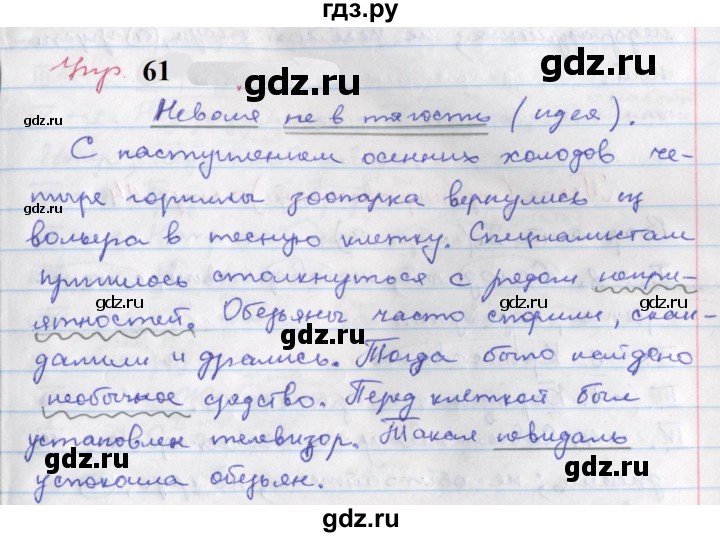 гдз.ру
Упр. 61
gdz.ru gdz.ru
Неволя не в тягость (идея).
gdz.ru
С наступлением осенних холодов че-
gdz.ru
тыре гориллы зоопарка вернулись из
вольера в тесную клетку. Специалистам
пришлось столкнуться с рядом непри-
gdz.ru gdz.ru gdz.ru
ятностей. Обезьяны часто спорили, скан-
далили и дрались. Тогда было найдено
gdz.ru gdz.ru
необычное средство. Перед клеткой был
установлен телевизор. Такая невидаль
gdz.ru gdz.ru
успокоила обезьян.
gdz.ru